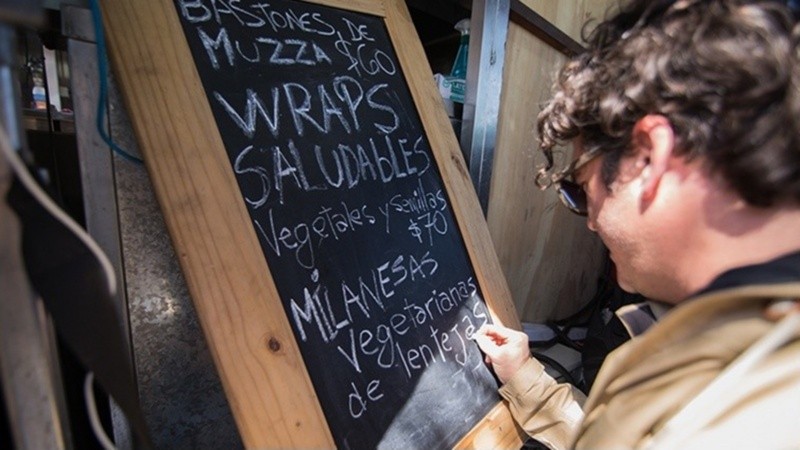 BASTONES DE
MUZZA $60
WRAPS
SALUDABLES
Vegetales y semillas
$70
MILANESAS
Vegetarianas
de lentejas